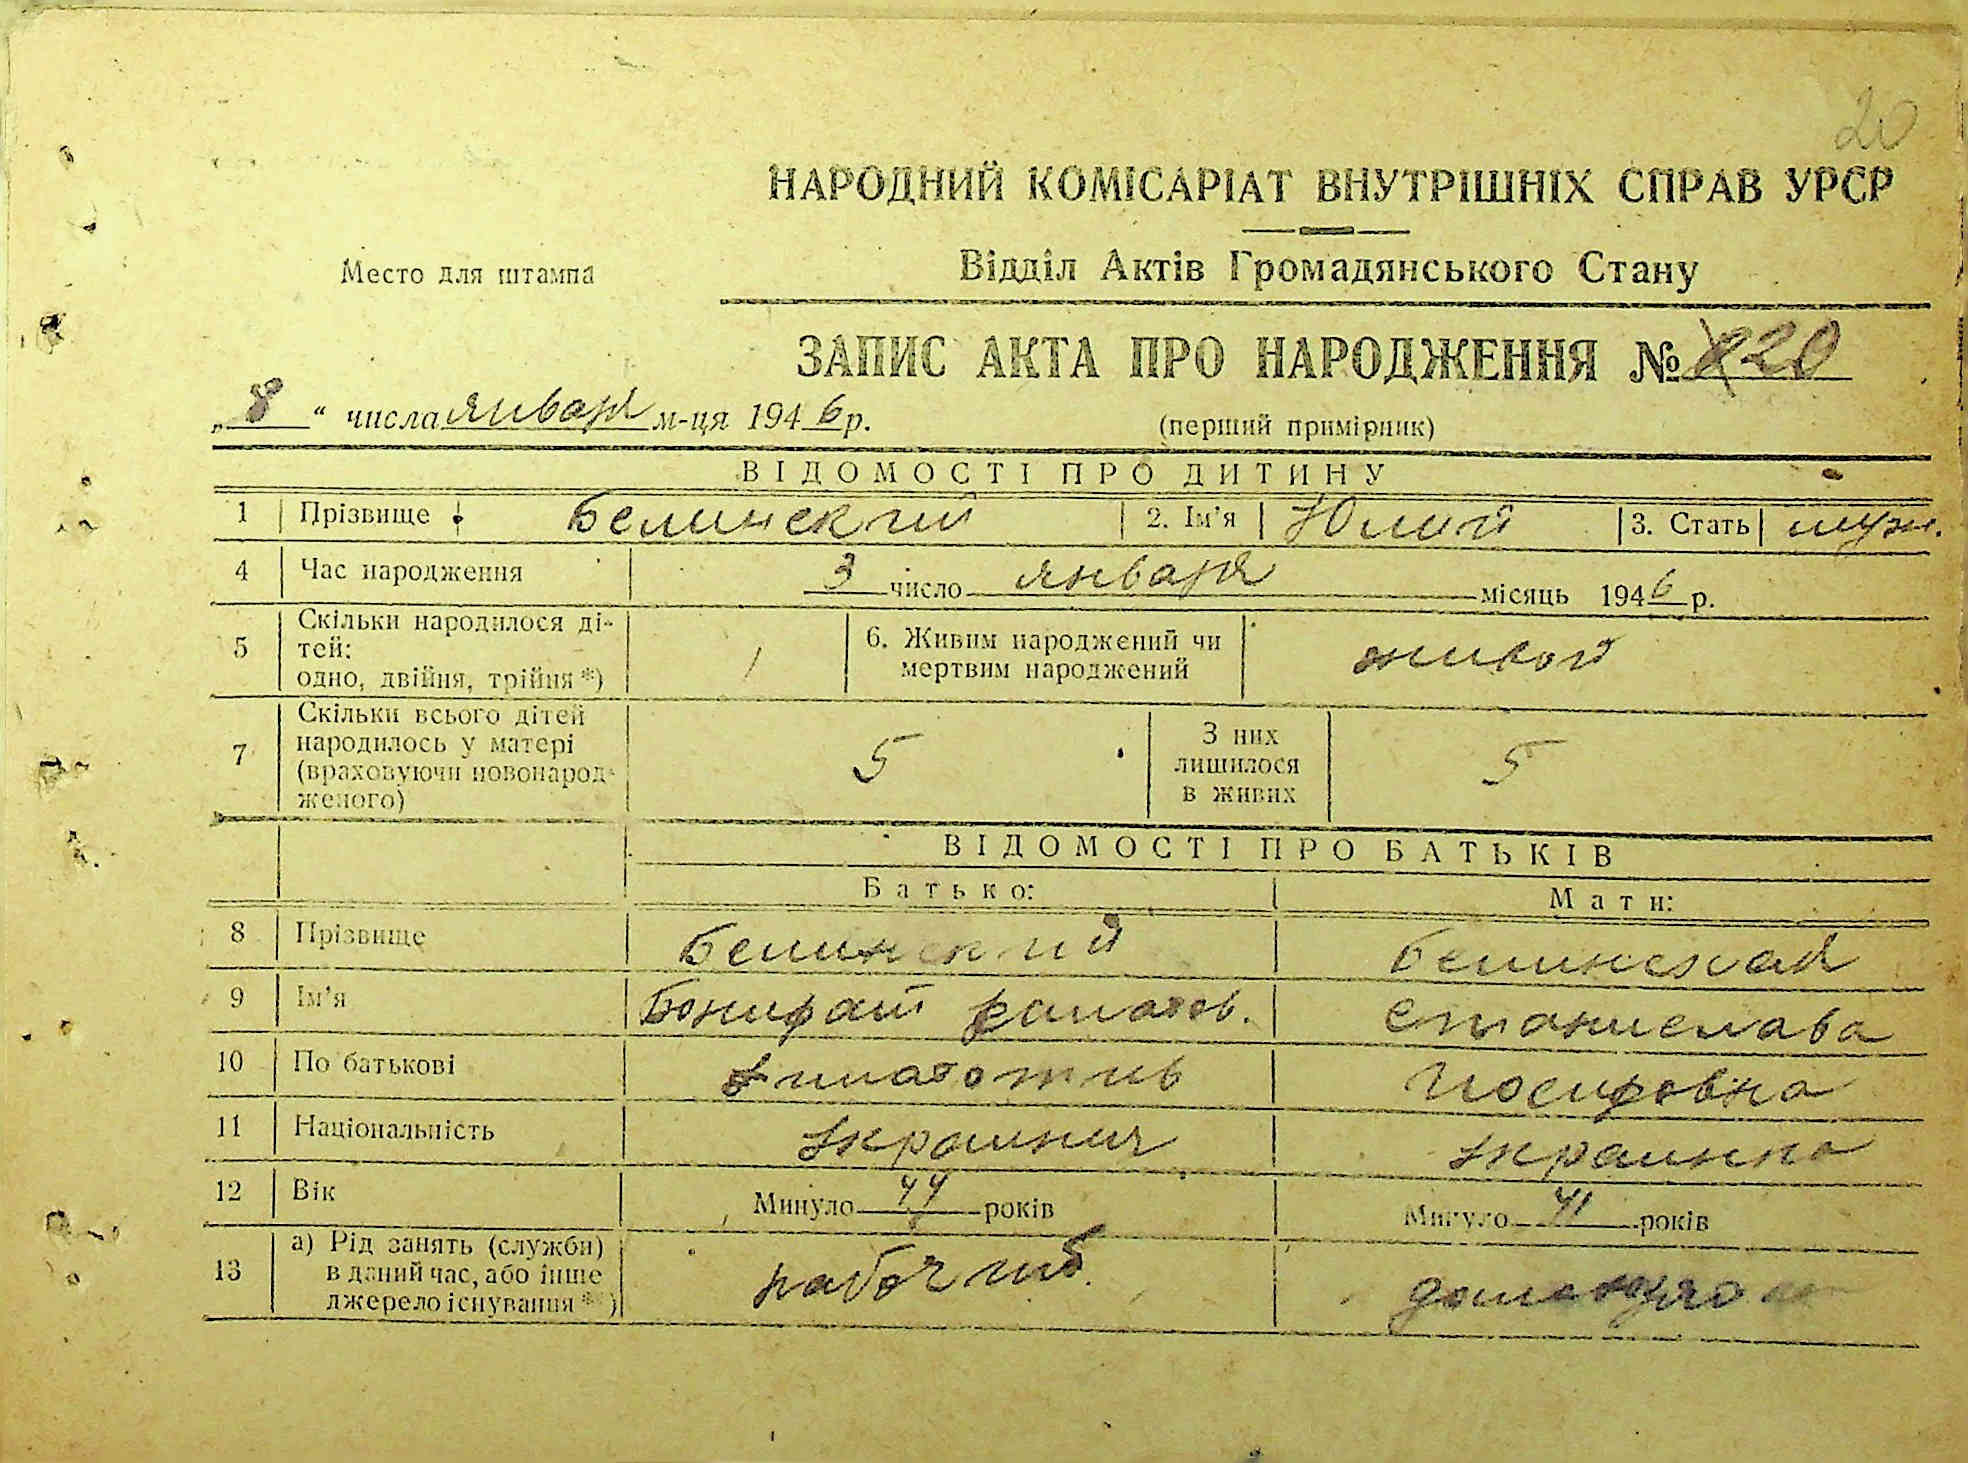 20
НАРОДНИЙ КОМІСАРІАТ ВНУТРІШНІХ СПРАВ УРСР
Место для штампа
Відділ Актів Громадянського Стану
ЗАПИС АКТА ПРО НАРОДЖЕННЯ № 20
„8“ числа января м-ця 1946 р.
(перший примірник)
ВІДОМОСТІ ПРО ДИТИНУ
1 Прізвище Белинский 2. Ім'я Юлий 3. Стать муж.
4 Час народження 3 число января місяць 1946 р.
5 Скільки народилося ді-
тей:
одно, двійня, трійня *) 1 6. Живим народжений чи
мертвим народжений живой
7 Скільки всього дітей
народилось у матері
(враховуючи новонарод-
женого) 5 З них
лишилося
в живих 5
ВІДОМОСТІ ПРО БАТЬКІВ
Батько: Мати:
8 Прізвище Белинский Белинская
9 Ім'я Бонифат Станислава
10 По батькові Иосифовна
11 Національність Украинец Украинка
12 Вік Минуло 44 років Минуло 41 років
13 а) Рід занять (служби)
в даний час, або інше
джерело існування *) рабочий